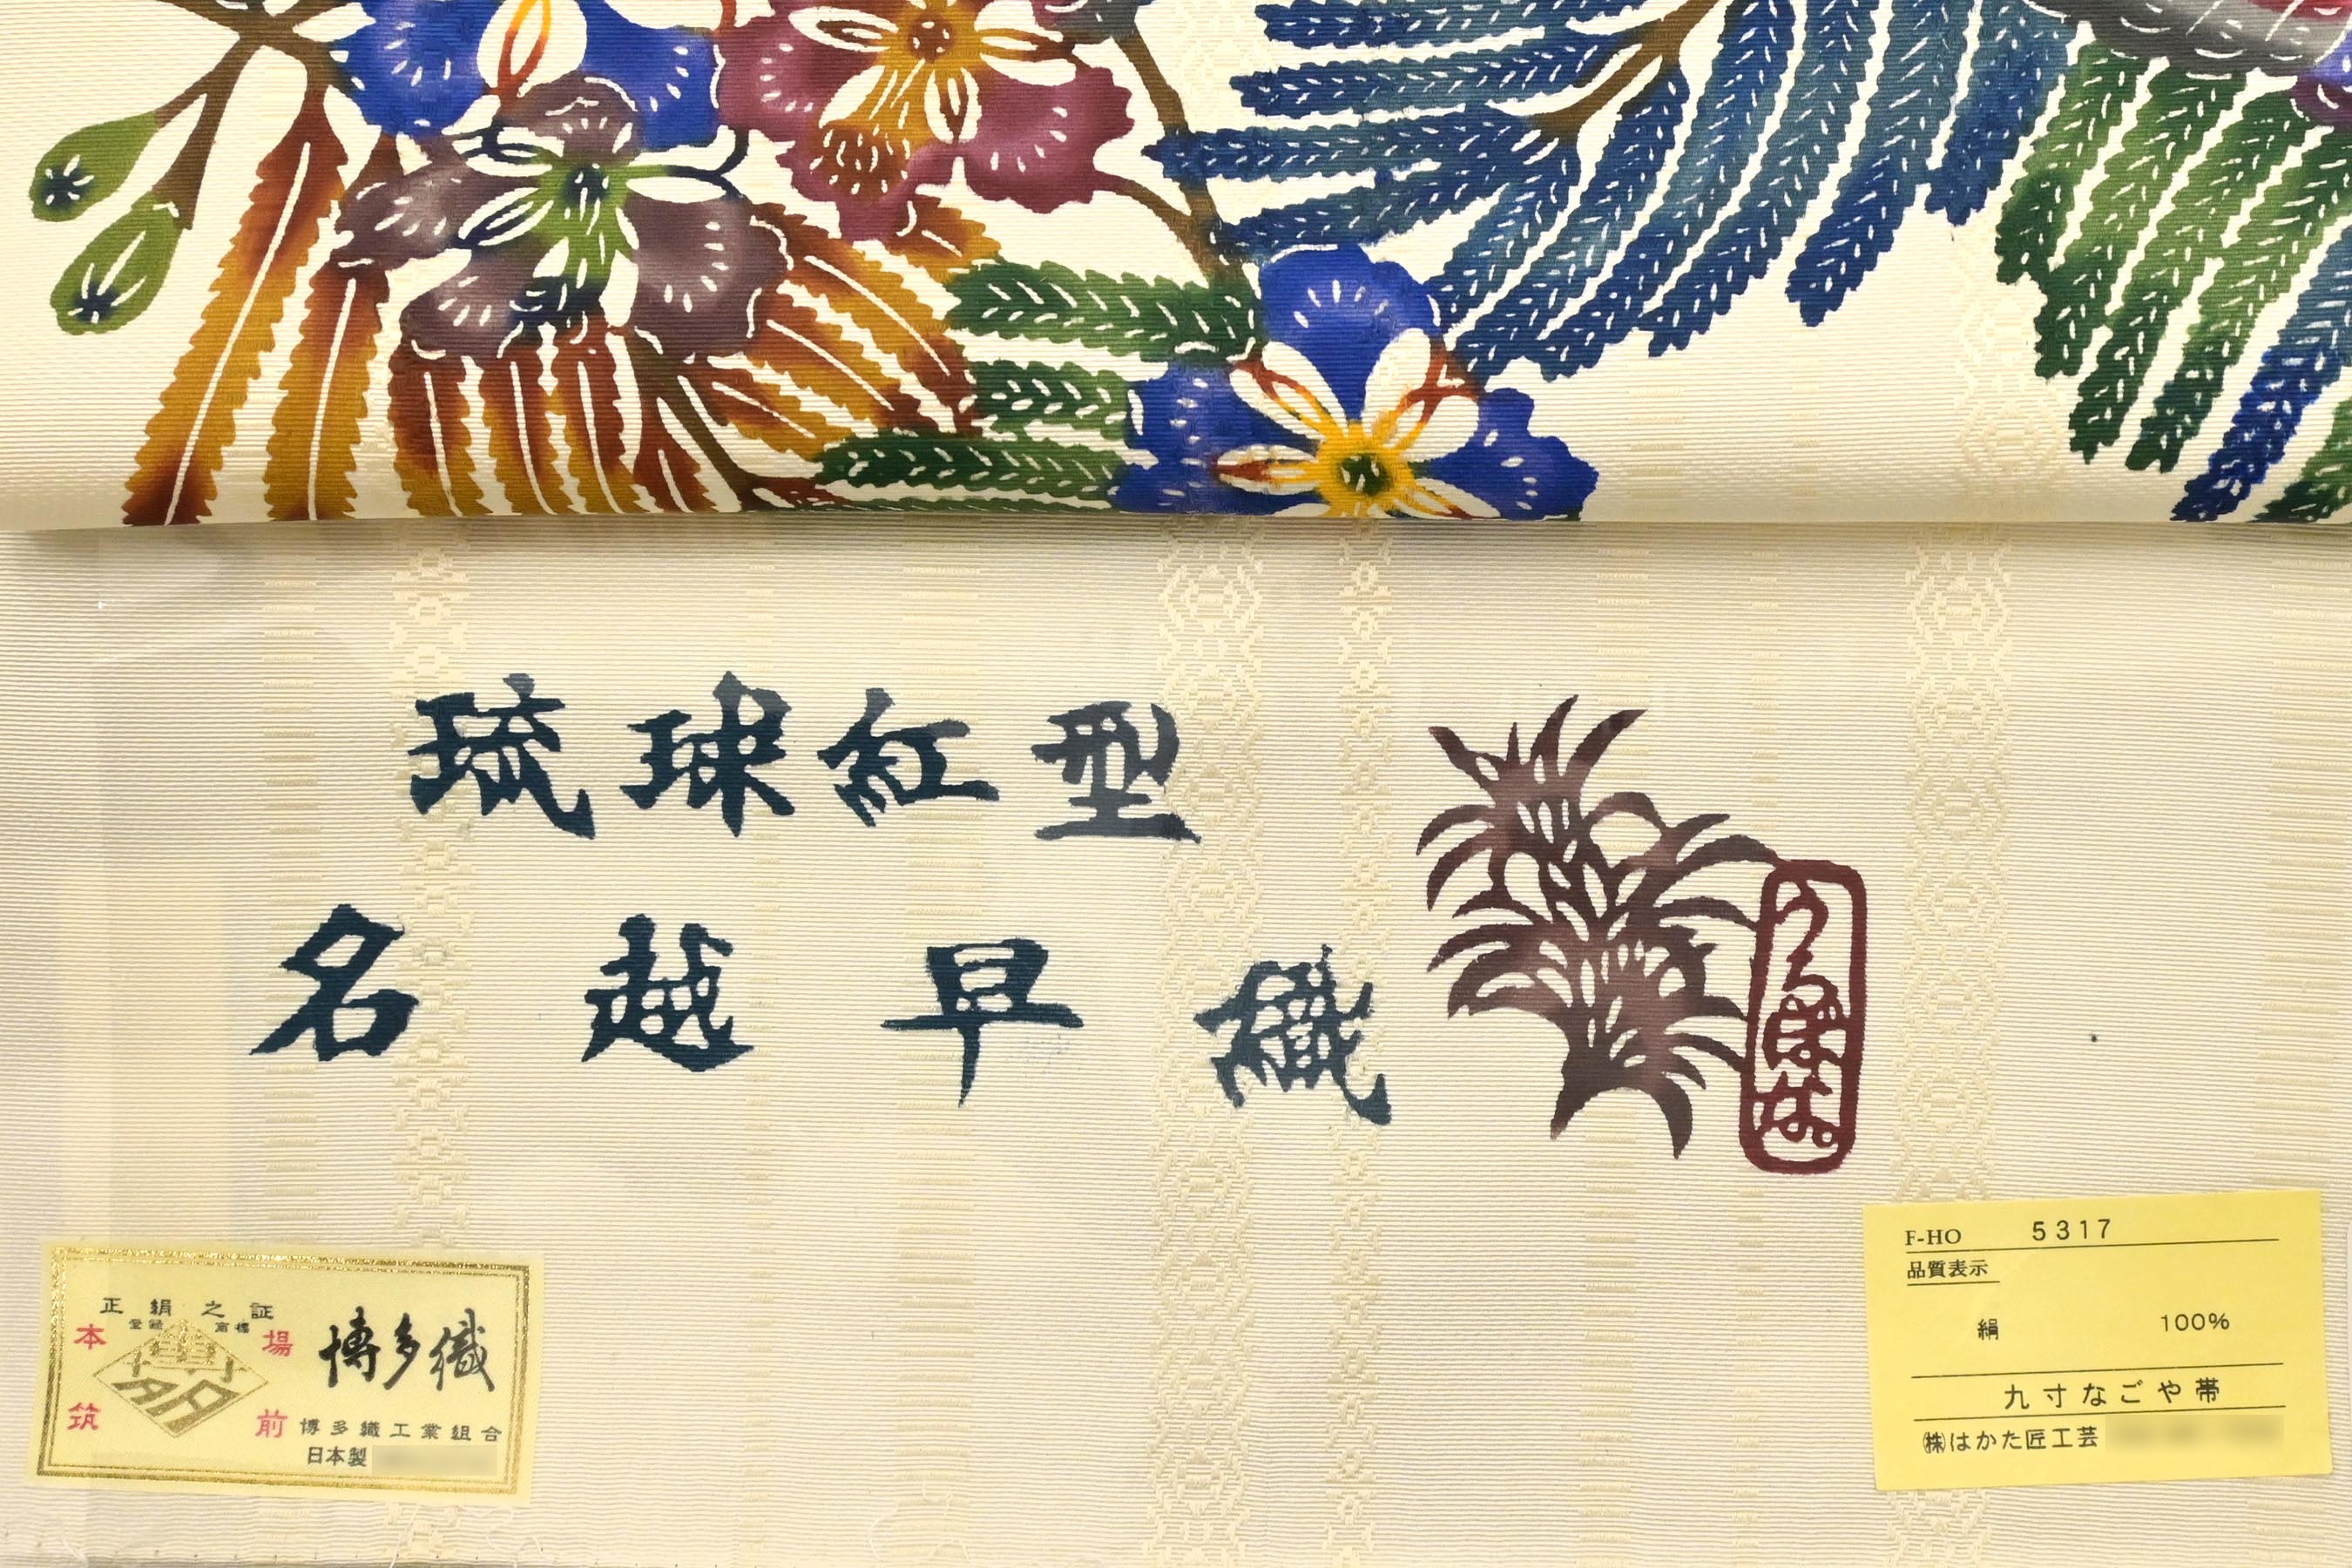 琉球紅型
名越早織
うるはな
正絹之証
登録 商標
本場
筑前
博多
博多織
博多織工業組合
日本製
F-HO 5317
品質表示
絹 100%
九寸なごや帯
㈱はかた匠工芸